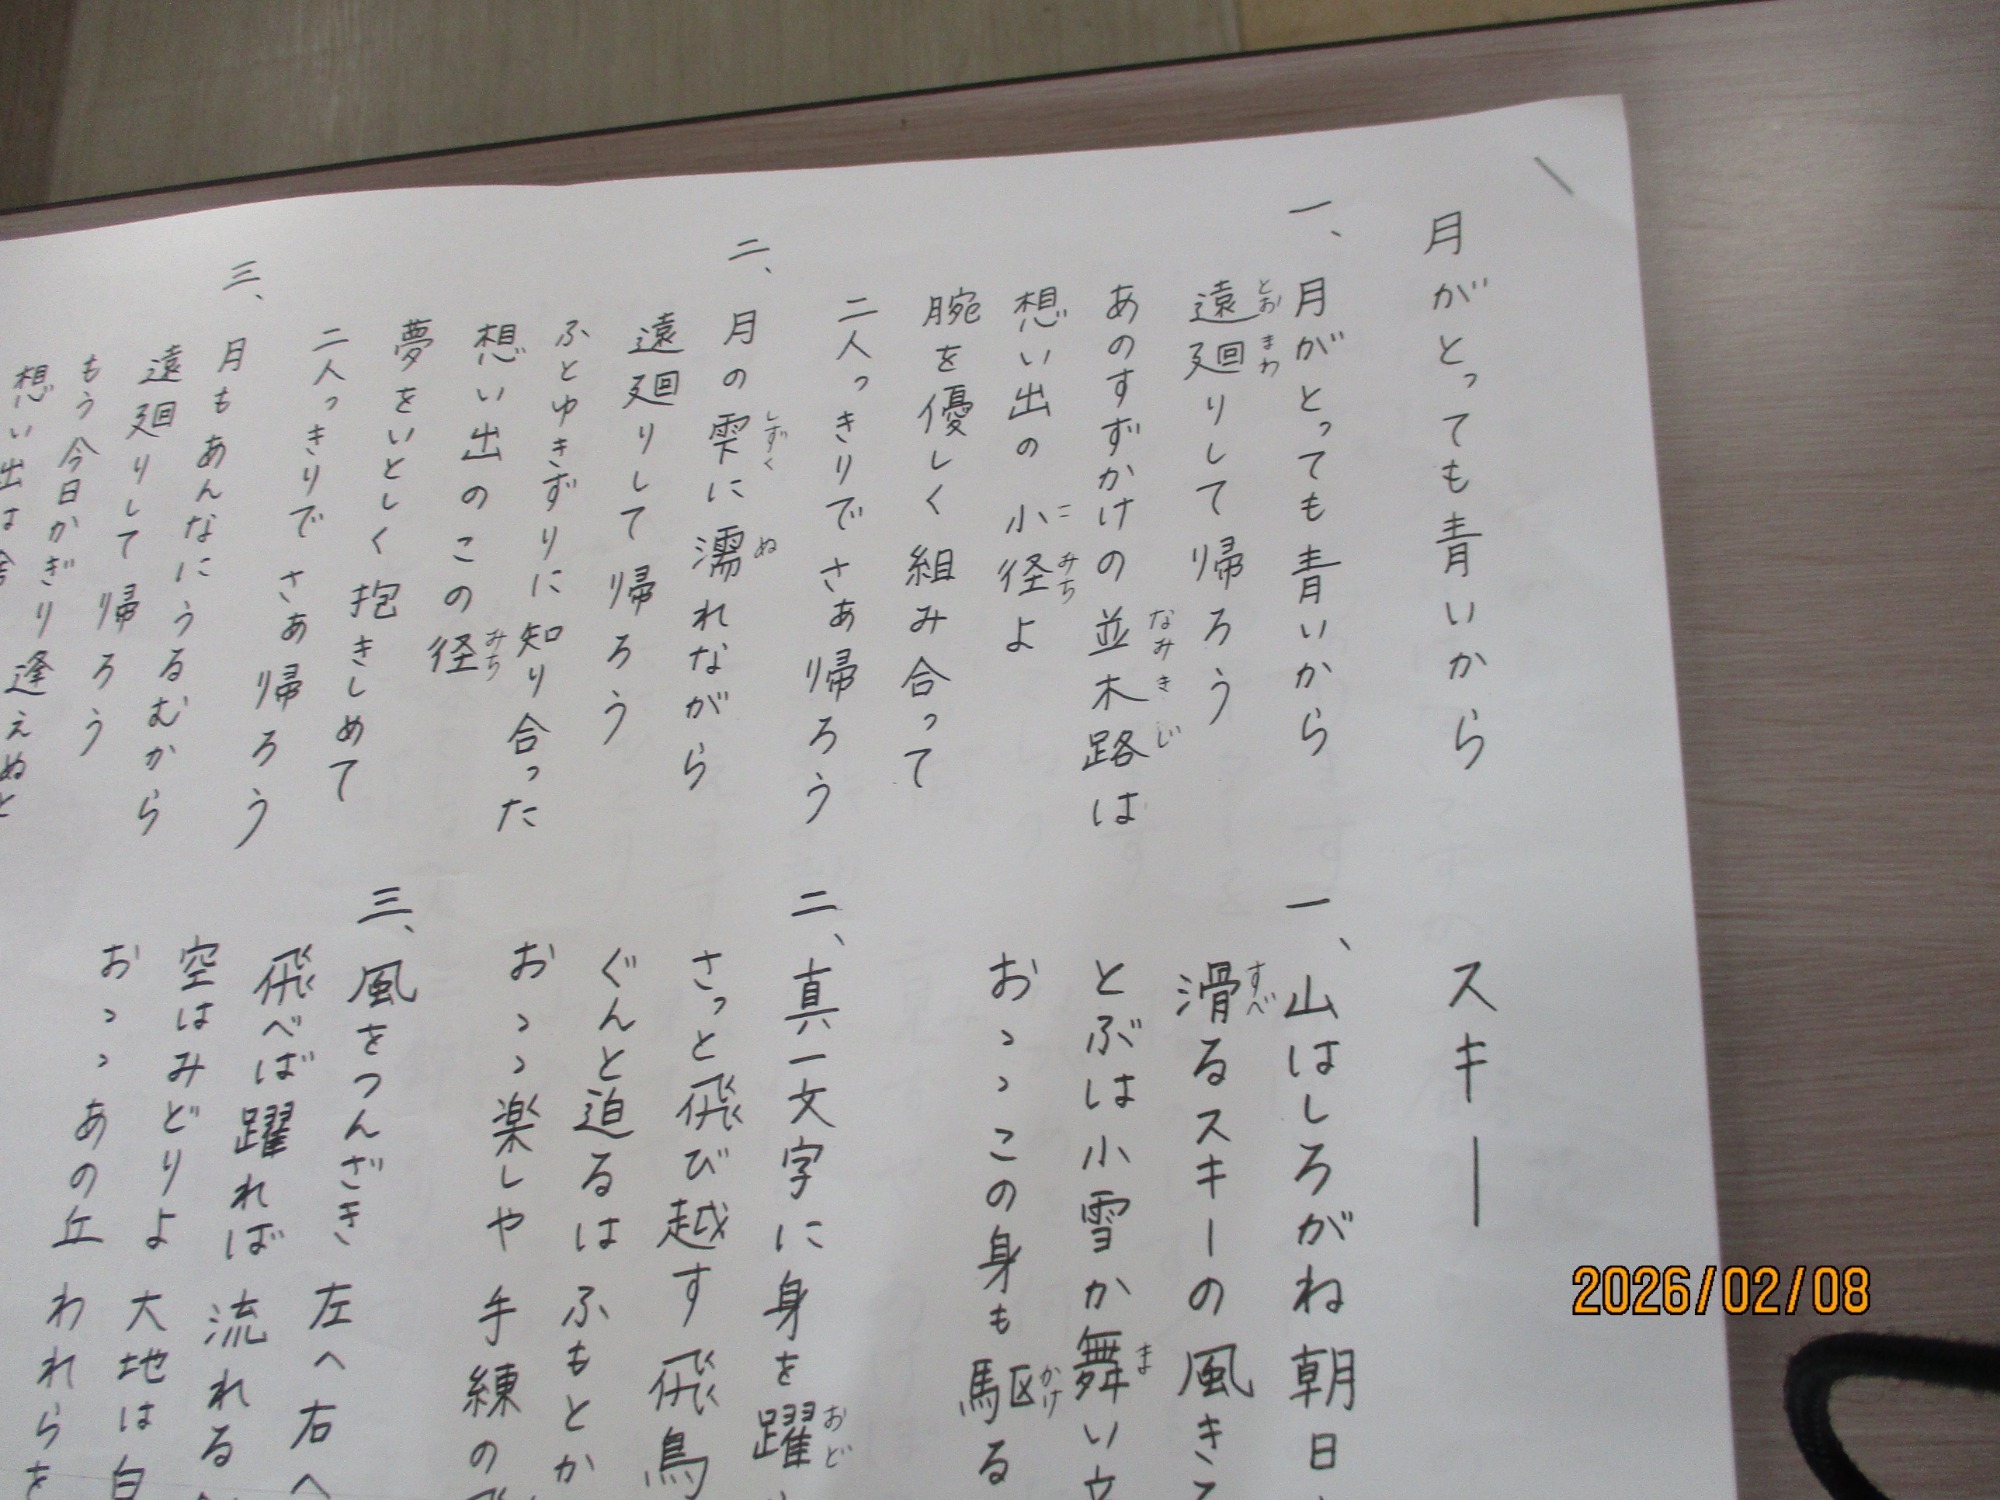 月がとっても青いから
一、月がとっても青いから
遠廻りして帰ろう
とおまわ
あのすずかけの並木路は
なみきじ
想い出の小径よ
こみち
腕を優しく組み合って
二人っきりでさあ帰ろう
二、月の雫に濡れながら
しずく ぬ
遠廻りして帰ろう
ふとゆきずりに知り合った
想い出のこの径
みち
夢をいとしく抱きしめて
二人っきりでさあ帰ろう
三、月もあんなにうるむから
遠廻りして帰ろう
もう今日かぎり逢えぬと
想い出は
スキー
一、山はしろがね朝日
滑るスキーの風き
すべ
とぶは小雪か舞い立
ま
おゝゝこの身も駆る
かけ
二、真一文字に身を躍
おど
さっと飛び越す飛鳥
ぐんと迫るはふもとか
おゝゝ楽しや手練の
三、風をつんざき左へ右へ
飛べば躍れば流れる
空はみどりよ大地は白
おゝゝあの丘われらを
2026/02/08